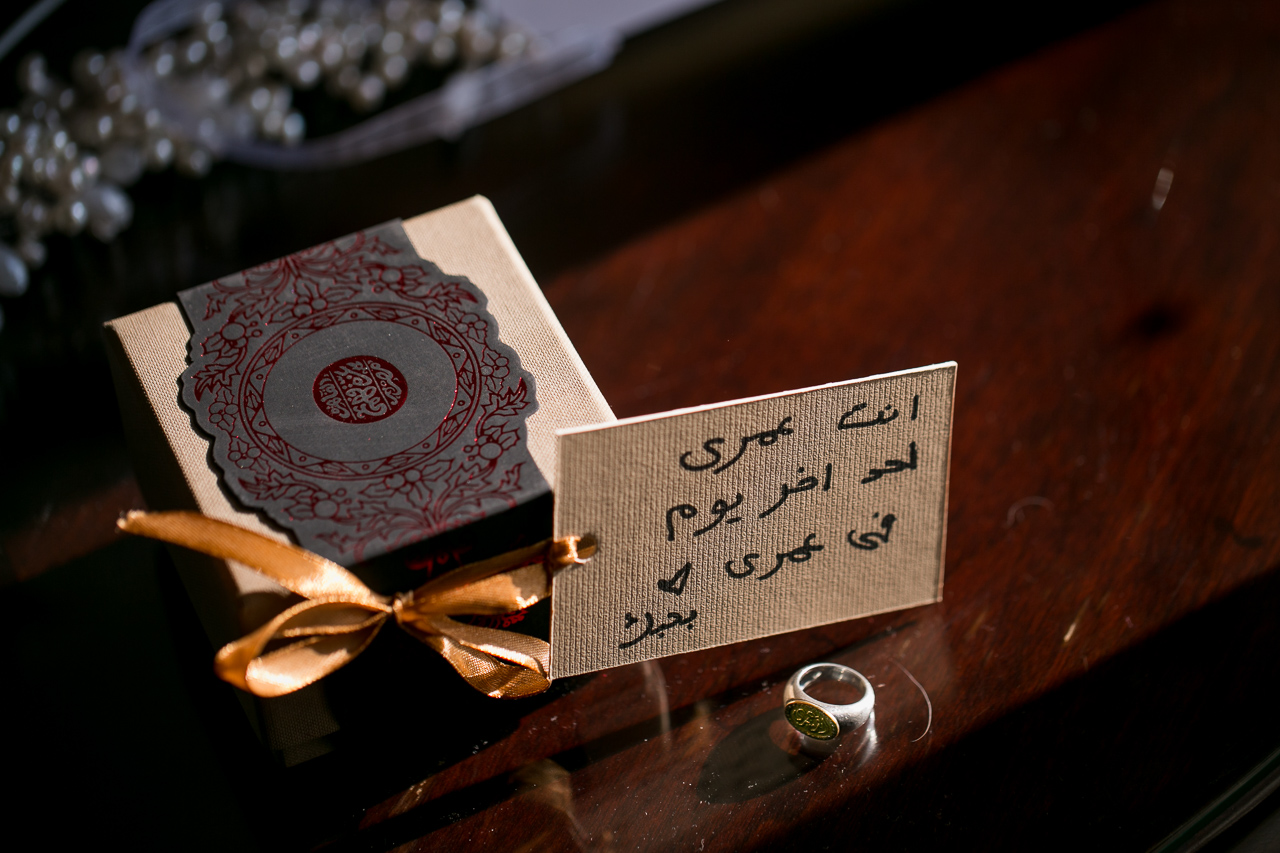 انت عمرى
لحد اخر يوم
فى عمرى
بحبك